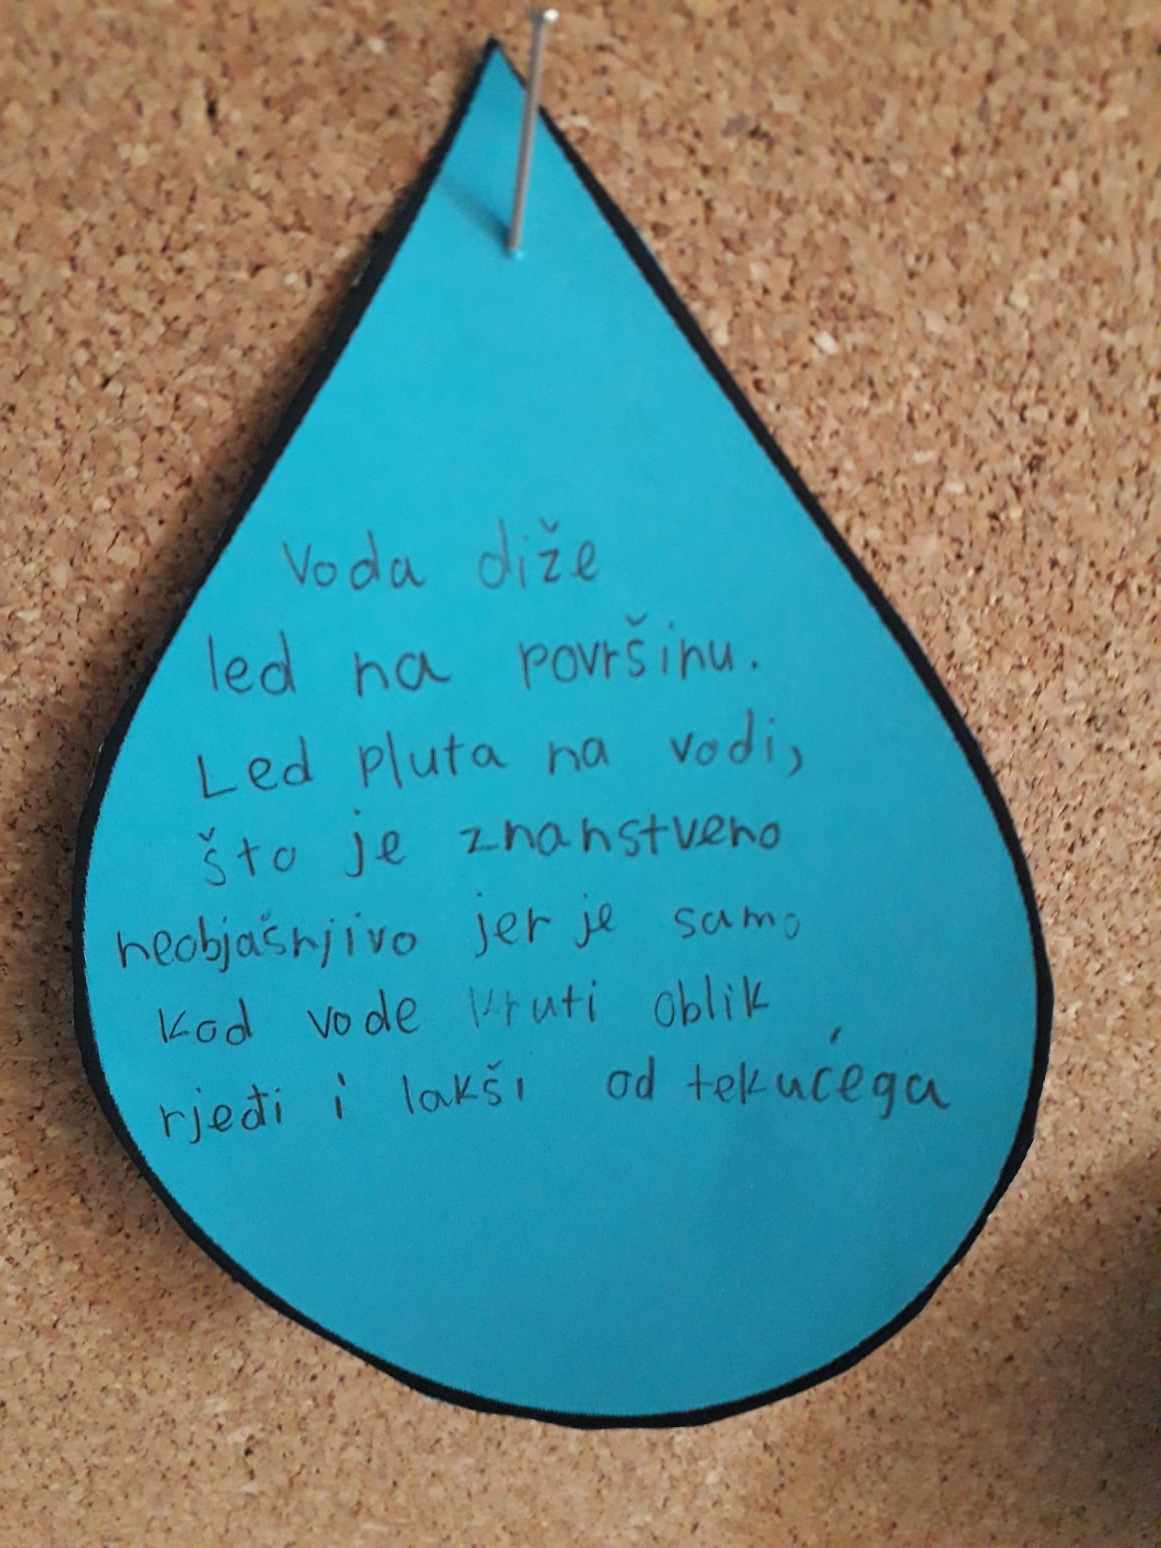 Voda diže
led na površinu.
Led pluta na vodi,
što je znanstveno
neobjašnjivo jer je samo
kod vode kruti oblik
rjeđi i lakši od tekućega